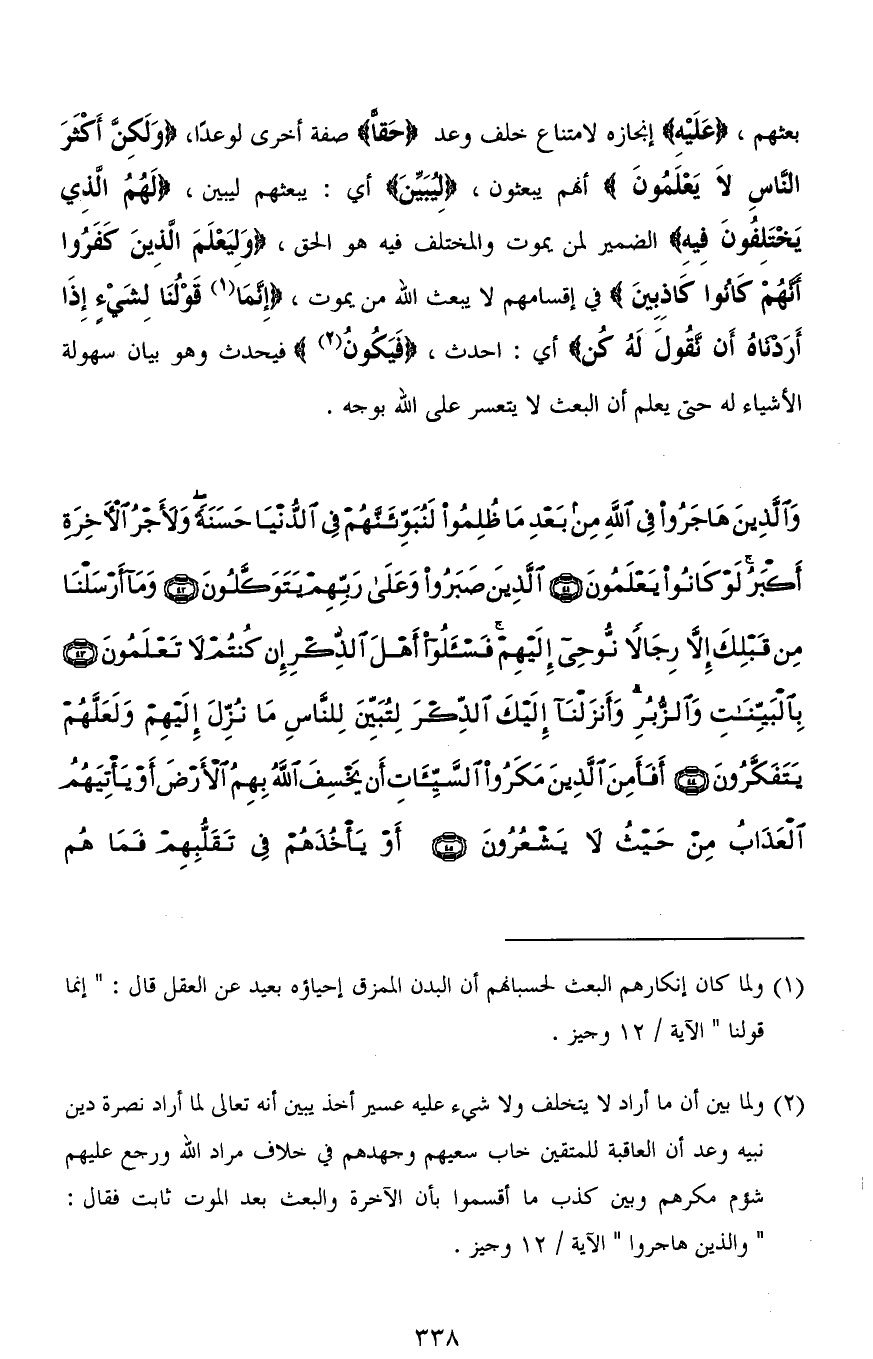 بعثهم ، ﴿عَلَيْهِ﴾ إنجازه لامتناع خلف وعد ﴿حَقاًّ﴾ صفة أخرى لوعدًا، ﴿وَلَكِنَّ أَكْثَرَ
النَّاسِ لاَ يَعْلَمُونَ ﴾ أنهم يبعثون ، ﴿لِيُبَيِّنَ﴾ أي : يبعثهم ليبين ، ﴿لَهُمُ الَّذِي
يَخْتَلِفُونَ فِيهِ﴾ الضمير لمن يموت والمختلف فيه هو الحق ، ﴿وَلِيَعْلَمَ الَّذِينَ كَفَرُوا
أَنَّهُمْ كَانُوا كَاذِبِينَ ﴾ في إقسامهم لا يبعث الله من يموت ، ﴿إِنَّمَا(١) قَوْلُنَا لِشَيْءٍ إِذَا
أَرَدْنَاهُ أَن نَّقُولَ لَهُ كُن﴾ أي : احدث ، ﴿فَيَكُونُ(٢) ﴾ فيحدث وهو بيان سهولة
الأشياء له حتى يعلم أن البعث لا يتعسر على الله بوجه .
وَٱلَّذِينَ هَاجَرُوا۟ فِى ٱللَّهِ مِنۢ بَعْدِ مَا ظُلِمُوا۟ لَنُبَوِّئَنَّهُمْ فِى ٱلدُّنْيَا حَسَنَةً ۖ وَلَأَجْرُ ٱلْءَاخِرَةِ
أَكْبَرُ ۚ لَوْ كَانُوا۟ يَعْلَمُونَ ۝٤١ ٱلَّذِينَ صَبَرُوا۟ وَعَلَىٰ رَبِّهِمْ يَتَوَكَّلُونَ ۝٤٢ وَمَآ أَرْسَلْنَا
مِن قَبْلِكَ إِلَّا رِجَالًا نُّوحِىٓ إِلَيْهِمْ ۚ فَسْـَٔلُوٓا۟ أَهْلَ ٱلذِّكْرِ إِن كُنتُمْ لَا تَعْلَمُونَ ۝٤٣
بِٱلْبَيِّنَـٰتِ وَٱلزُّبُرِ ۗ وَأَنزَلْنَآ إِلَيْكَ ٱلذِّكْرَ لِتُبَيِّنَ لِلنَّاسِ مَا نُزِّلَ إِلَيْهِمْ وَلَعَلَّهُمْ
يَتَفَكَّرُونَ ۝٤٤ أَفَأَمِنَ ٱلَّذِينَ مَكَرُوا۟ ٱلسَّيِّـَٔاتِ أَن يَخْسِفَ ٱللَّهُ بِهِمُ ٱلْأَرْضَ أَوْ يَأْتِيَهُمُ
ٱلْعَذَابُ مِنْ حَيْثُ لَا يَشْعُرُونَ ۝٤٥ أَوْ يَأْخُذَهُمْ فِى تَقَلُّبِهِمْ فَمَا هُم
(١) ولما كان إنكارهم البعث لحسبانهم أن البدن الممزق إحياؤه بعيد عن العقل قال : " إنما
قولنا " الآية / ١٢ وجيز .
(٢) ولما بين أن ما أراد لا يتخلف ولا شيء عليه عسير أخذ يبين أنه تعالى لما أراد نصرة دين
نبيه وعد أن العاقبة للمتقين خاب سعيهم وجهدهم في خلاف مراد الله ورجع عليهم
شؤم مكرهم وبين كذب ما أقسموا بأن الآخرة والبعث بعد الموت ثابت فقال :
" والذين هاجروا " الآية / ١٢ وجيز .
٣٣٨